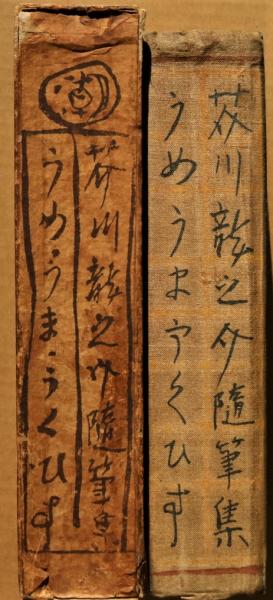 芥川龍之介隨筆集
うめ・うま・うぐひす
芥川龍之介隨筆集
うめうまうぐひす